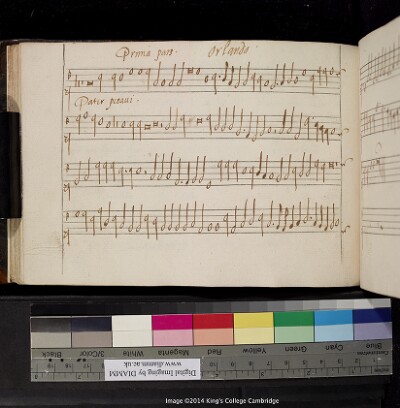 Prima pars. Orlando.
Pater peccavi.
Black 3/Color White Magenta Red Yellow Green Cyan Blue
Centimetres
Digital Imaging by DIAMM
www.diamm.ac.uk
Image ©2014 King's College Cambridge